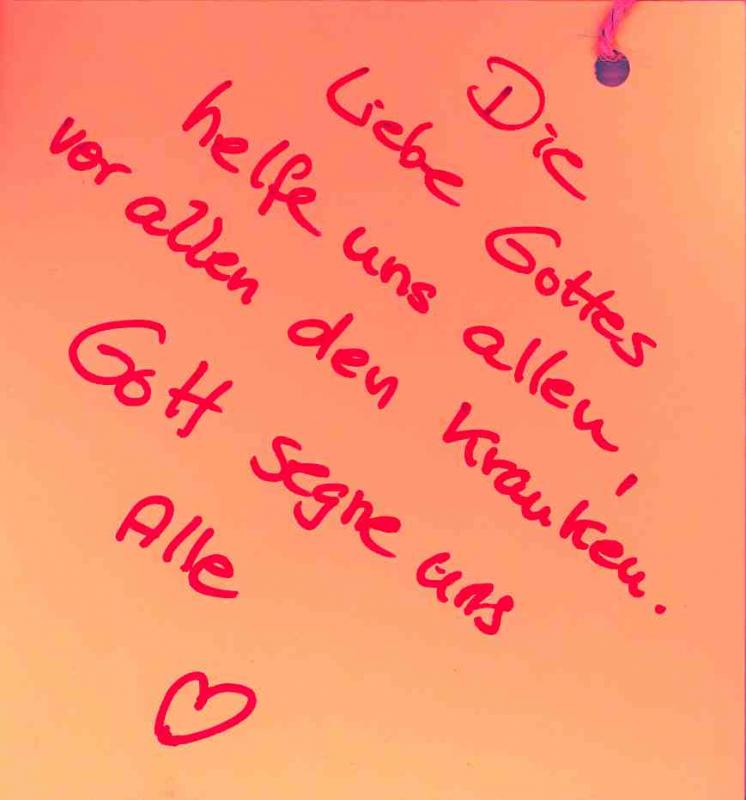 Die
Liebe Gottes
helfe uns allen,
vor allen den Kranken.
Gott segne uns
Alle